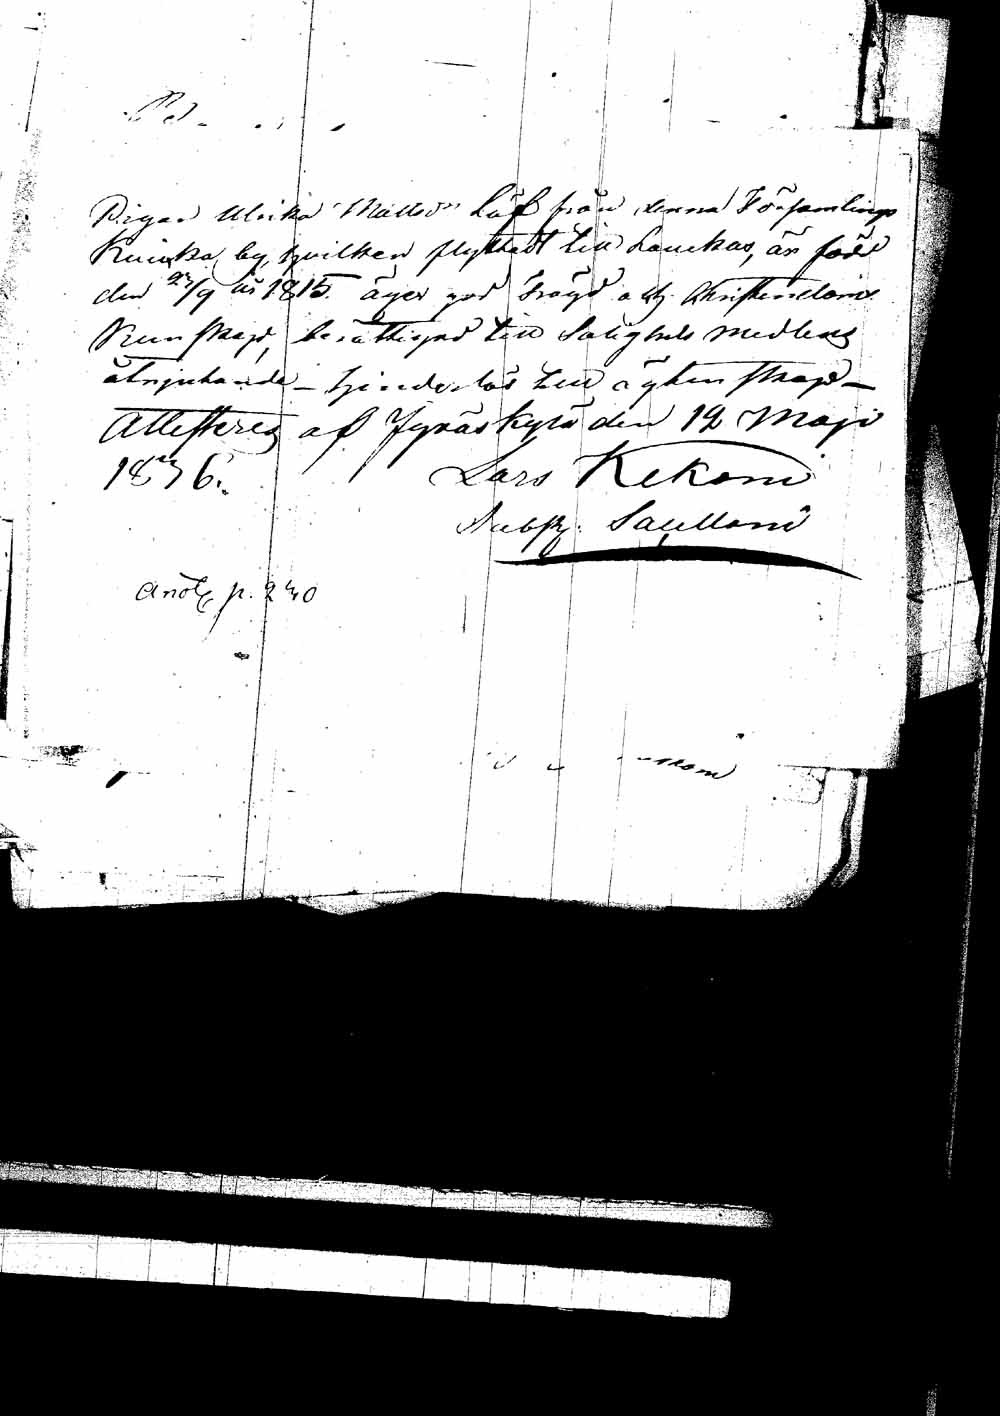 Pigan Ulrika Mattsdr Löf från denna Församlings
Kuikka by, hvilken flyttat till Laukas, är född
den 27/9 år 1815. äger god Frägd och Christendoms
Kunskap, berättigad till Salighets medlens
åtnjutande – hinderlös till ägtenskap –
Attesteras af Jyväskylä den 12 Maji
1836.
Lars Kekoni
Anotz p. 240